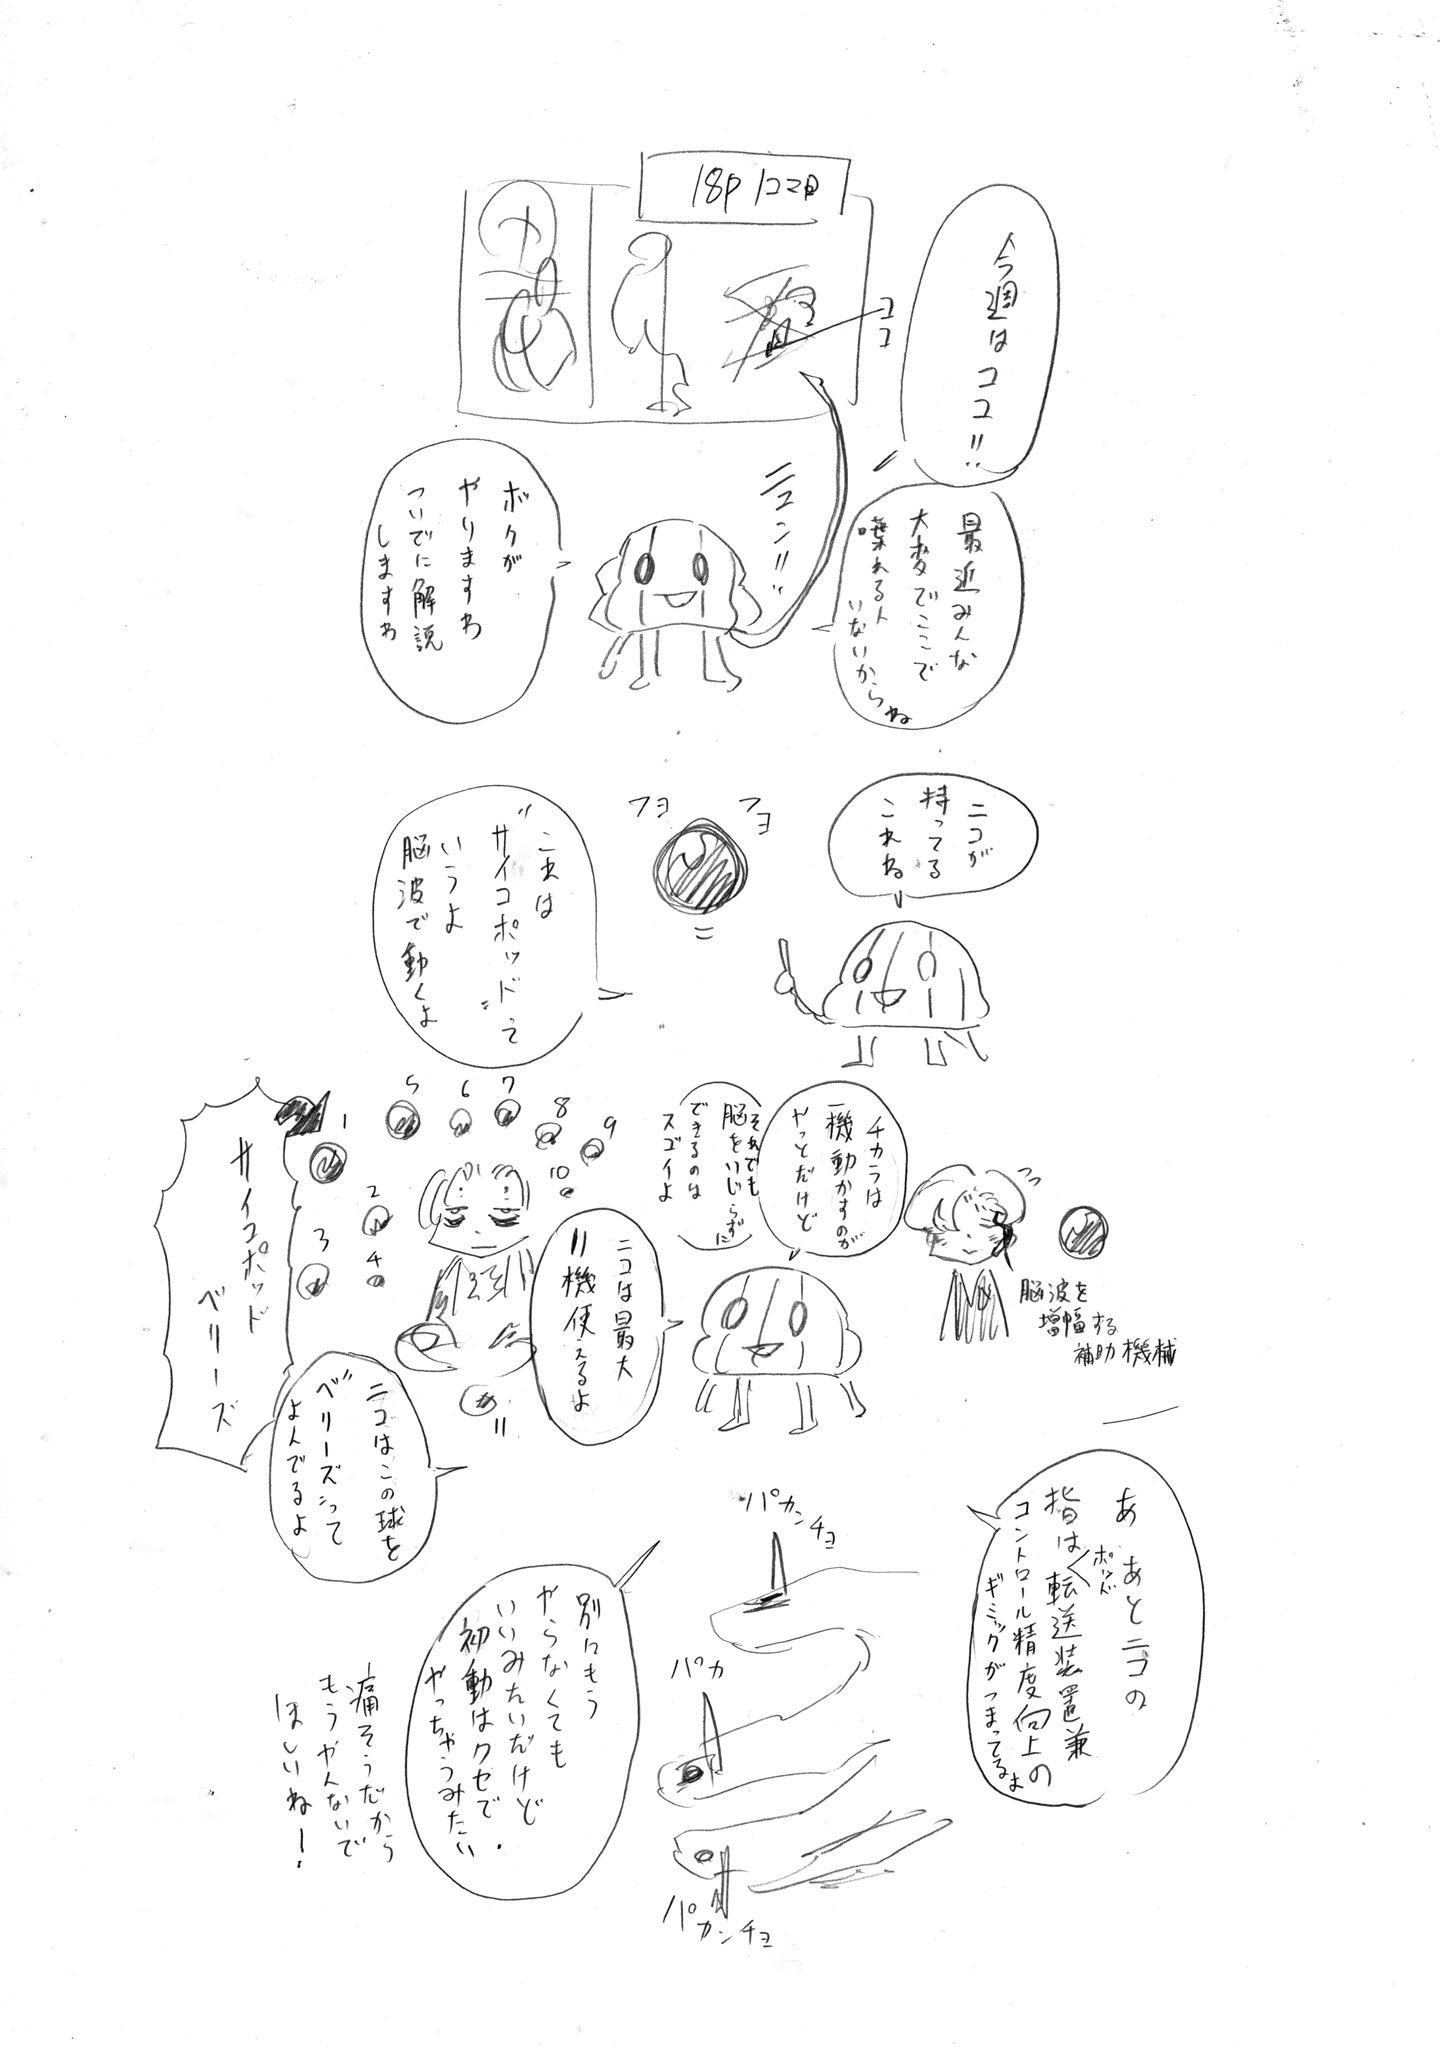 18P 1コマ目
ココ
今週はココ!!
最近みんな
大変でここで
喋れる人
いないからね
ニュン!!
ボクが
やりますわ
ついでに解説
しますわ
ニコが
持ってる
これね
フヨ
フヨ
これは
"サイコポッド"って
いうよ
脳波で動くよ
脳波を
増幅する
補助機械
チカラは
一機動かすのが
やっとだけど
それでも
脳をいじらずに
できるのは
スゴイよ
ニコは最大
11機使えるよ
1
2
3
4
5
6
7
8
9
10
11
サイコポッド
ベリーズ
ニコはこの球を
"ベリーズ"って
よんでるよ
あ あとニコの
指はポッド転送装置兼
コントロール精度向上の
ギミックがつまってるよ
パカンチョ
パカ
パカンチョ
別にもう
やらなくても
いいみたいだけど
初動はクセで
やっちゃうみたい
痛そうだから
もうやんないで
ほしいね!